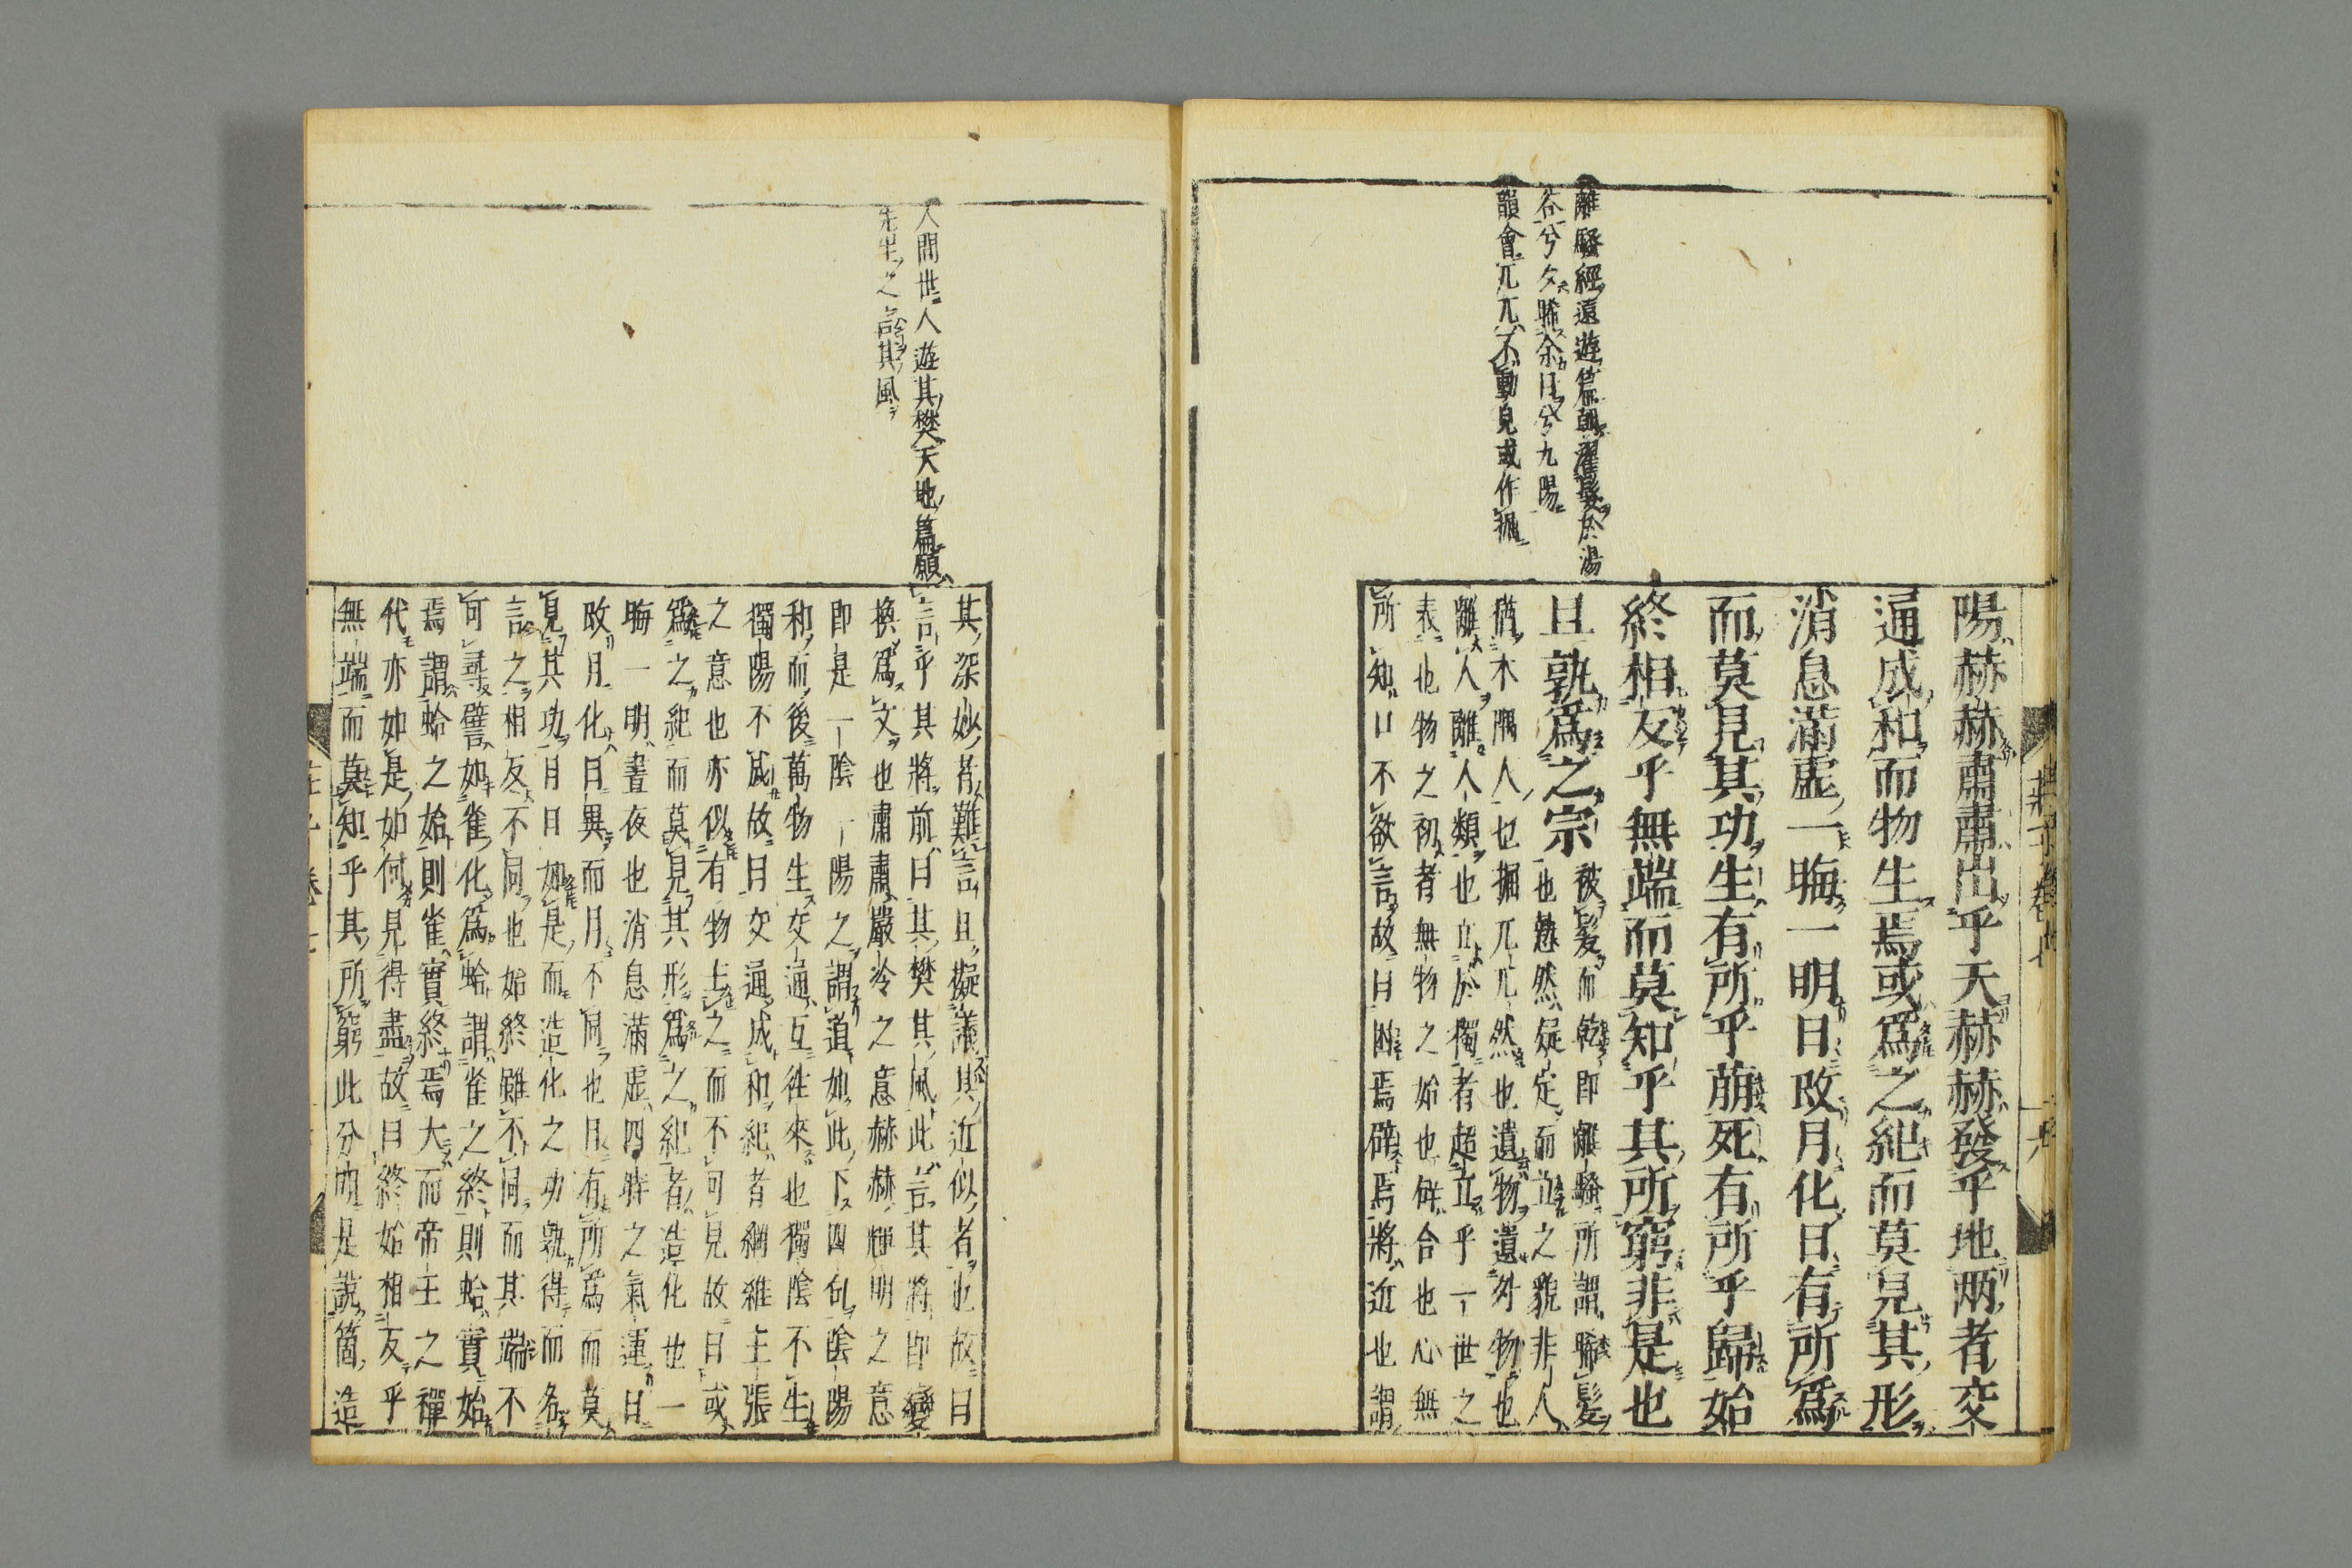 離騷經遠遊篇朝濯髮於湯
谷兮夕晞余日兮九陽
韻會兀兀不動皃或作掘
陽赫赫肅肅出乎天赫赫發乎地兩者交
通成和而物生焉或爲之紀而莫見其形
消息滿虛一晦一明日改月化日有所爲
而莫見其功生有所乎萌死有所乎歸始
終相反乎無端而莫知乎其所窮非是也
且孰爲之宗
被髮而乾即離騷所謂晞髮
也慹然凝定而立之貌非人
猶木隅人也掘兀兀然也遺物遺外物也
離人離人類也立於獨者超立乎一世之
表也物之初者無物之始也併合也心無
所知口不欲言故曰困焉辟焉將近也謂
人間世人遊其樊天地篇願
先生之言其風
其深妙者難言且擬議其近似者也故曰
言乎其將前曰其樊其風此言其將即變
換爲文也肅肅嚴冷之意赫赫輝明之意
即是一陰一陽之謂道如此下四句陰陽
和而後萬物生交通互徃來也獨陰不生
獨陽不成故曰交通成和紀者綱維主張
之意也亦似有物主之而不可見故曰或
爲之紀而莫見其形爲之紀者造化也一
晦一明晝夜也消息滿虛四時之氣運日
改月化日異而月不同也日有所爲而莫
見其功月日如是而造化之功孰得而名
言之相反不同也始終雖不同而其端不
可尋譬如雀化爲蛤謂雀之終則蛤實始
焉謂蛤之始則雀實終焉大而帝王之禪
代亦如是如何見得盡故曰終始相反乎
無端而莫知乎其所窮此分明是說箇造